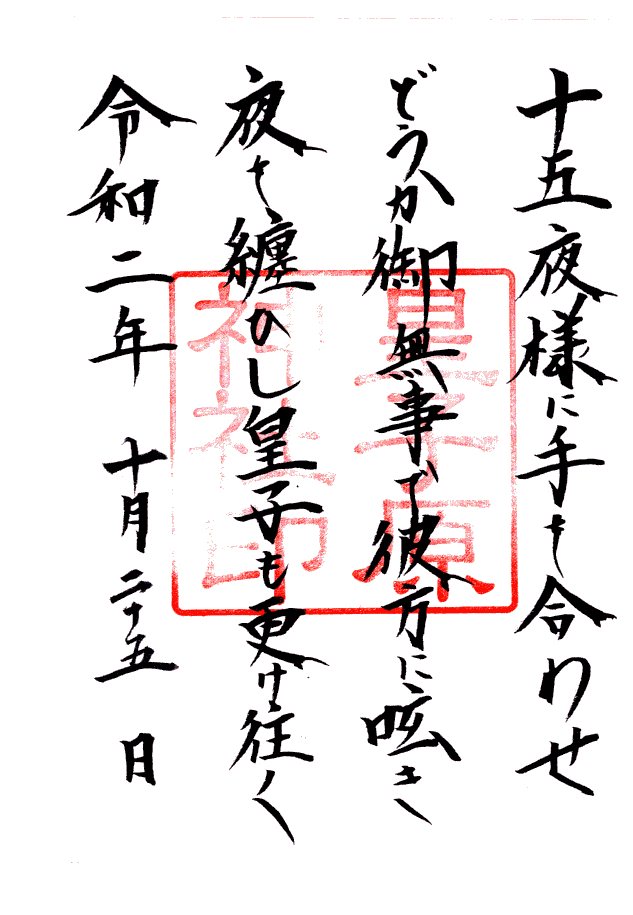 十五夜様に手を合わせ
どうか御無事で彼方に呟き
夜を纏ひし皇子も更け往く
令和二年 十月二十五日
皇子原
神社印